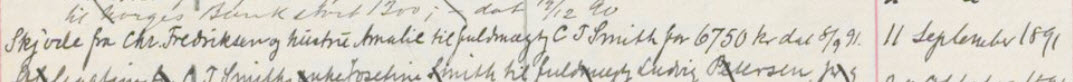 til Norges Bank stort 1300,- dat 12/12 90
Skjøde fra Chr. Fredriksen og hustru Amalie til fuldmægtg C J Smith for 6750 kr dat 8/9 91. 11 September 1891
C J Smiths enke Josefine Smith til fuldmægtg Ludvig Petersen